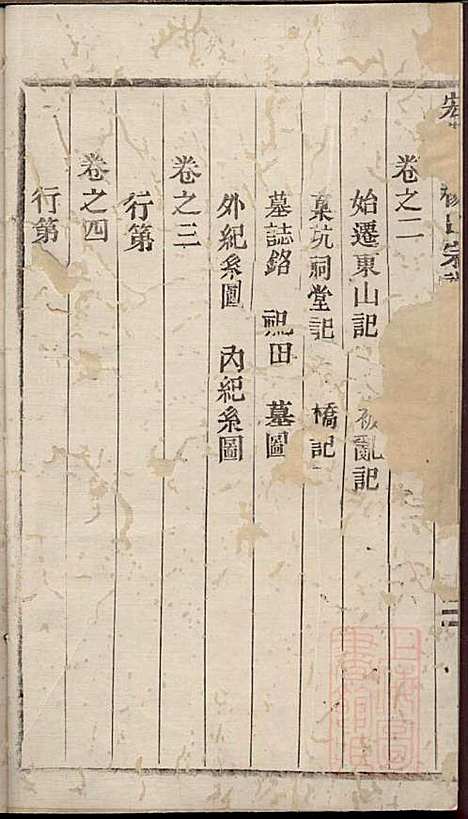 宗
卷之二
始遷東山記 亂記
祠堂記 橋記
墓誌銘 祀田 墓圖
外紀系圖 內紀系圖
卷之三
行第
卷之四
行第